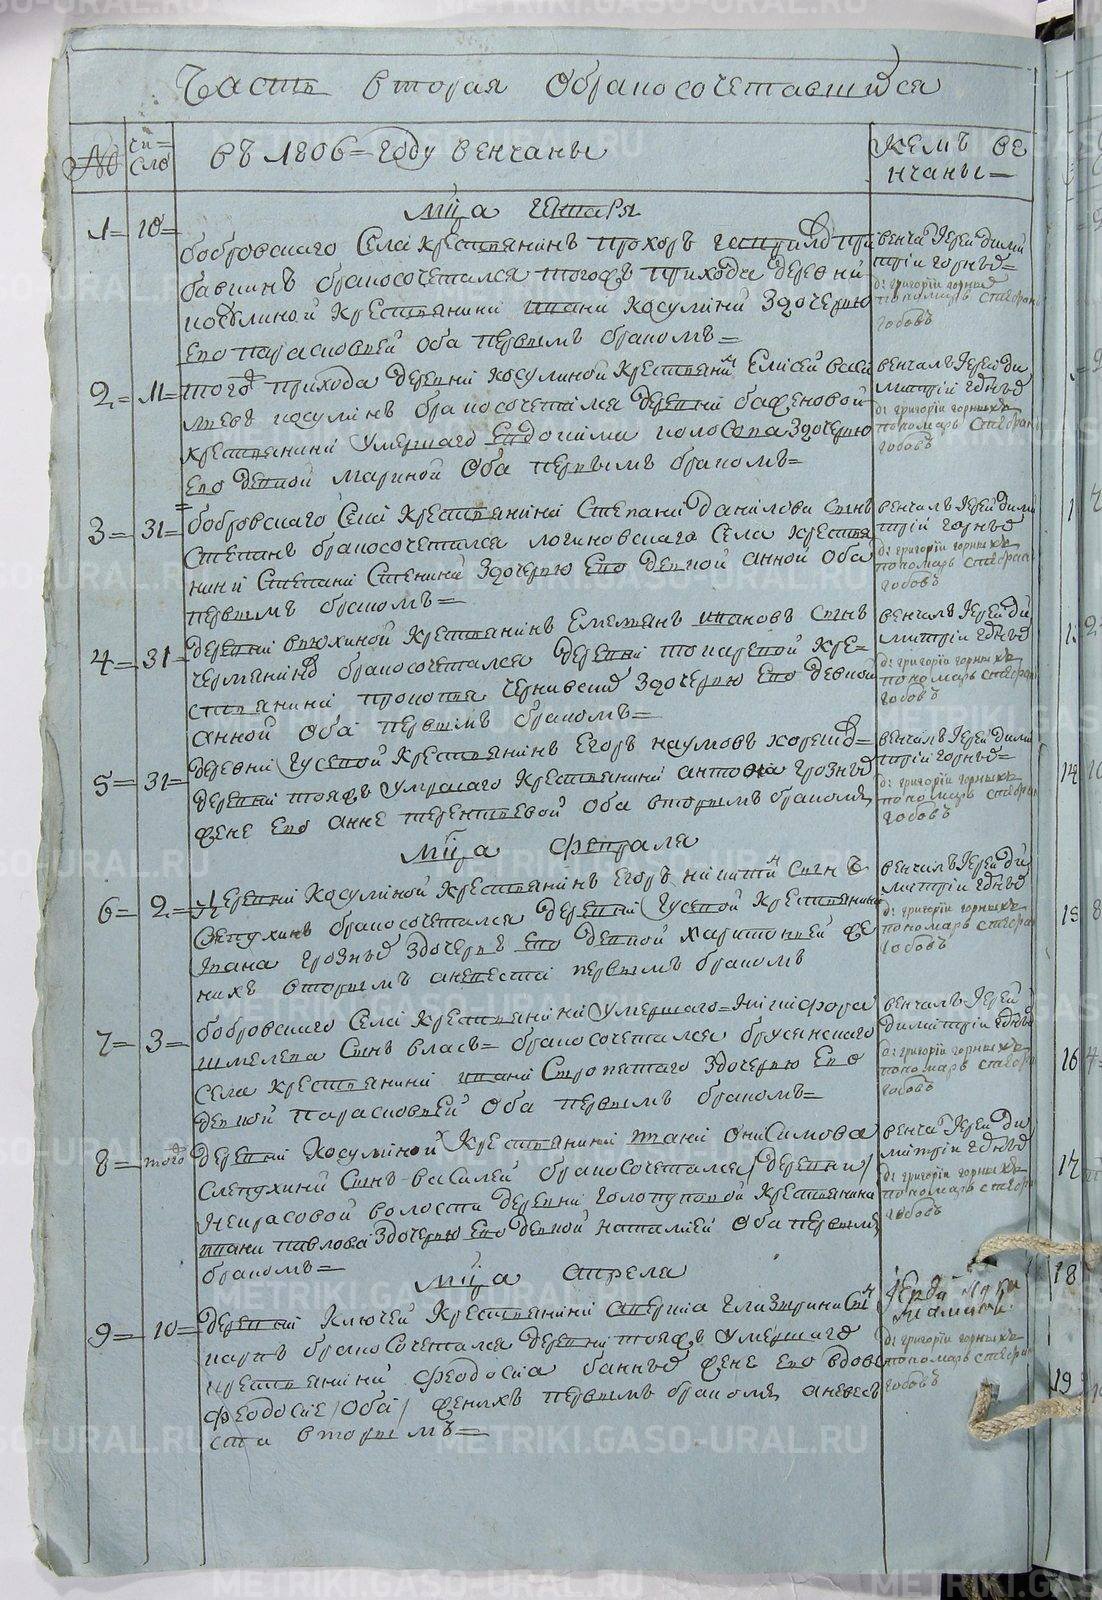 Часть вторая обракосочетавшихся
№
чи=
сло
въ 1806= году венчаны
кемъ ве
нчаны=
Мца Генваря
1= 10=
бобровскаго села крестьянинъ прохоръ
бракосочетался тогожъ прихода деревни
косулиной крестьянина ивана косулина здочерью
ево парасковьей оба первымъ бракомъ=
венча іерей дими
трій горныхъ=
д: григорій горныхъ
пономарь стефанъ
гобовъ
2= 11=
того прихода деревни косулиной крестьянинъ елисей васи
льевъ косулинъ бракосочетался деревни баженовой
крестьянина умершаго евдокима колосова здочерью
ево девкой мариной оба первымъ бракомъ=
венчалъ іерей ди
митрій горныхъ
д: григорій горныхъ
пономарь стефанъ
гобовъ
3= 31=
бобровскаго села крестьянина степана данилова сынъ
степанъ бракосочетался логиновскаго села крестья
нина степана стенина здочерью ево девкой анной оба
первымъ бракомъ=
венчалъ іерей дими
трій горныхъ
д: григорій горныхъ
пономарь стефанъ
гобовъ
4= 31=
деревни вьюхиной крестьянинъ емельянъ ивановъ сынъ
бракосочетался деревни токаревой кре=
стьянина прокопья здочерью ево девкой
анной оба первымъ бракомъ=
венчалъ іерей ди
митрій горныхъ
д: григорій горныхъ
пономарь стефанъ
гобовъ
5= 31=
деревни гусевой крестьянинъ егоръ наумовъ
деревни тояжъ умршаго крестьянина антона грозныхъ
жене ево анне терентьевой оба вторымъ бракомъ
венчалъ іерей дими
трій горныхъ=
д: григорій горныхъ
пономарь стефанъ
гобовъ
Мца февраля
6= 2=
деревни косулиной крестьянинъ егоръ никитинъ сынъ
слепухинъ бракосочетался деревни гусевой крестьянина
ивана грозныхъ здочерью ево девкой харитоньей же
нихъ вторымъ аневеста первымъ бракомъ
венчалъ іерей ди
митрій горныхъ
д: григорій горныхъ
пономарь стефанъ
гобовъ
7= 3=
бобровскаго села крестьянина умершаго= никифора
шмелева сынъ власъ= бракосочетался брусянскаго
села крестьянина ивана здочерью ево
девкой парасковьей оба первымъ бракомъ=
венчалъ іерей
димитрій горныхъ
д: григорій горныхъ
пономарь стефанъ
гобовъ
8= тогожъ
деревни косулиной крестьянина ивана онисимова
слепухина сынъ василей бракосочетался деревни
некрасовой волости деревни голопуповой крестьянина
ивана павлова здочерью ево девкой наталіей оба первымъ
бракомъ=
венча іерей ди
митрій горныхъ
д: григорій горныхъ
пономарь стефанъ
гобовъ
Мца апреля
9= 10=
деревни ключей крестьянина
карпъ бракосочетался деревни тояжъ умершаго
крестьянина феодосіа банныхъ жене ево вдове
феодосіе /оба/ женихъ первымъ бракомъ аневес
ста вторымъ=
д: григорій горныхъ
пономарь стефанъ
гобовъ
14
15
16
17
18
19
METRIKI.GASO-URAL.RU